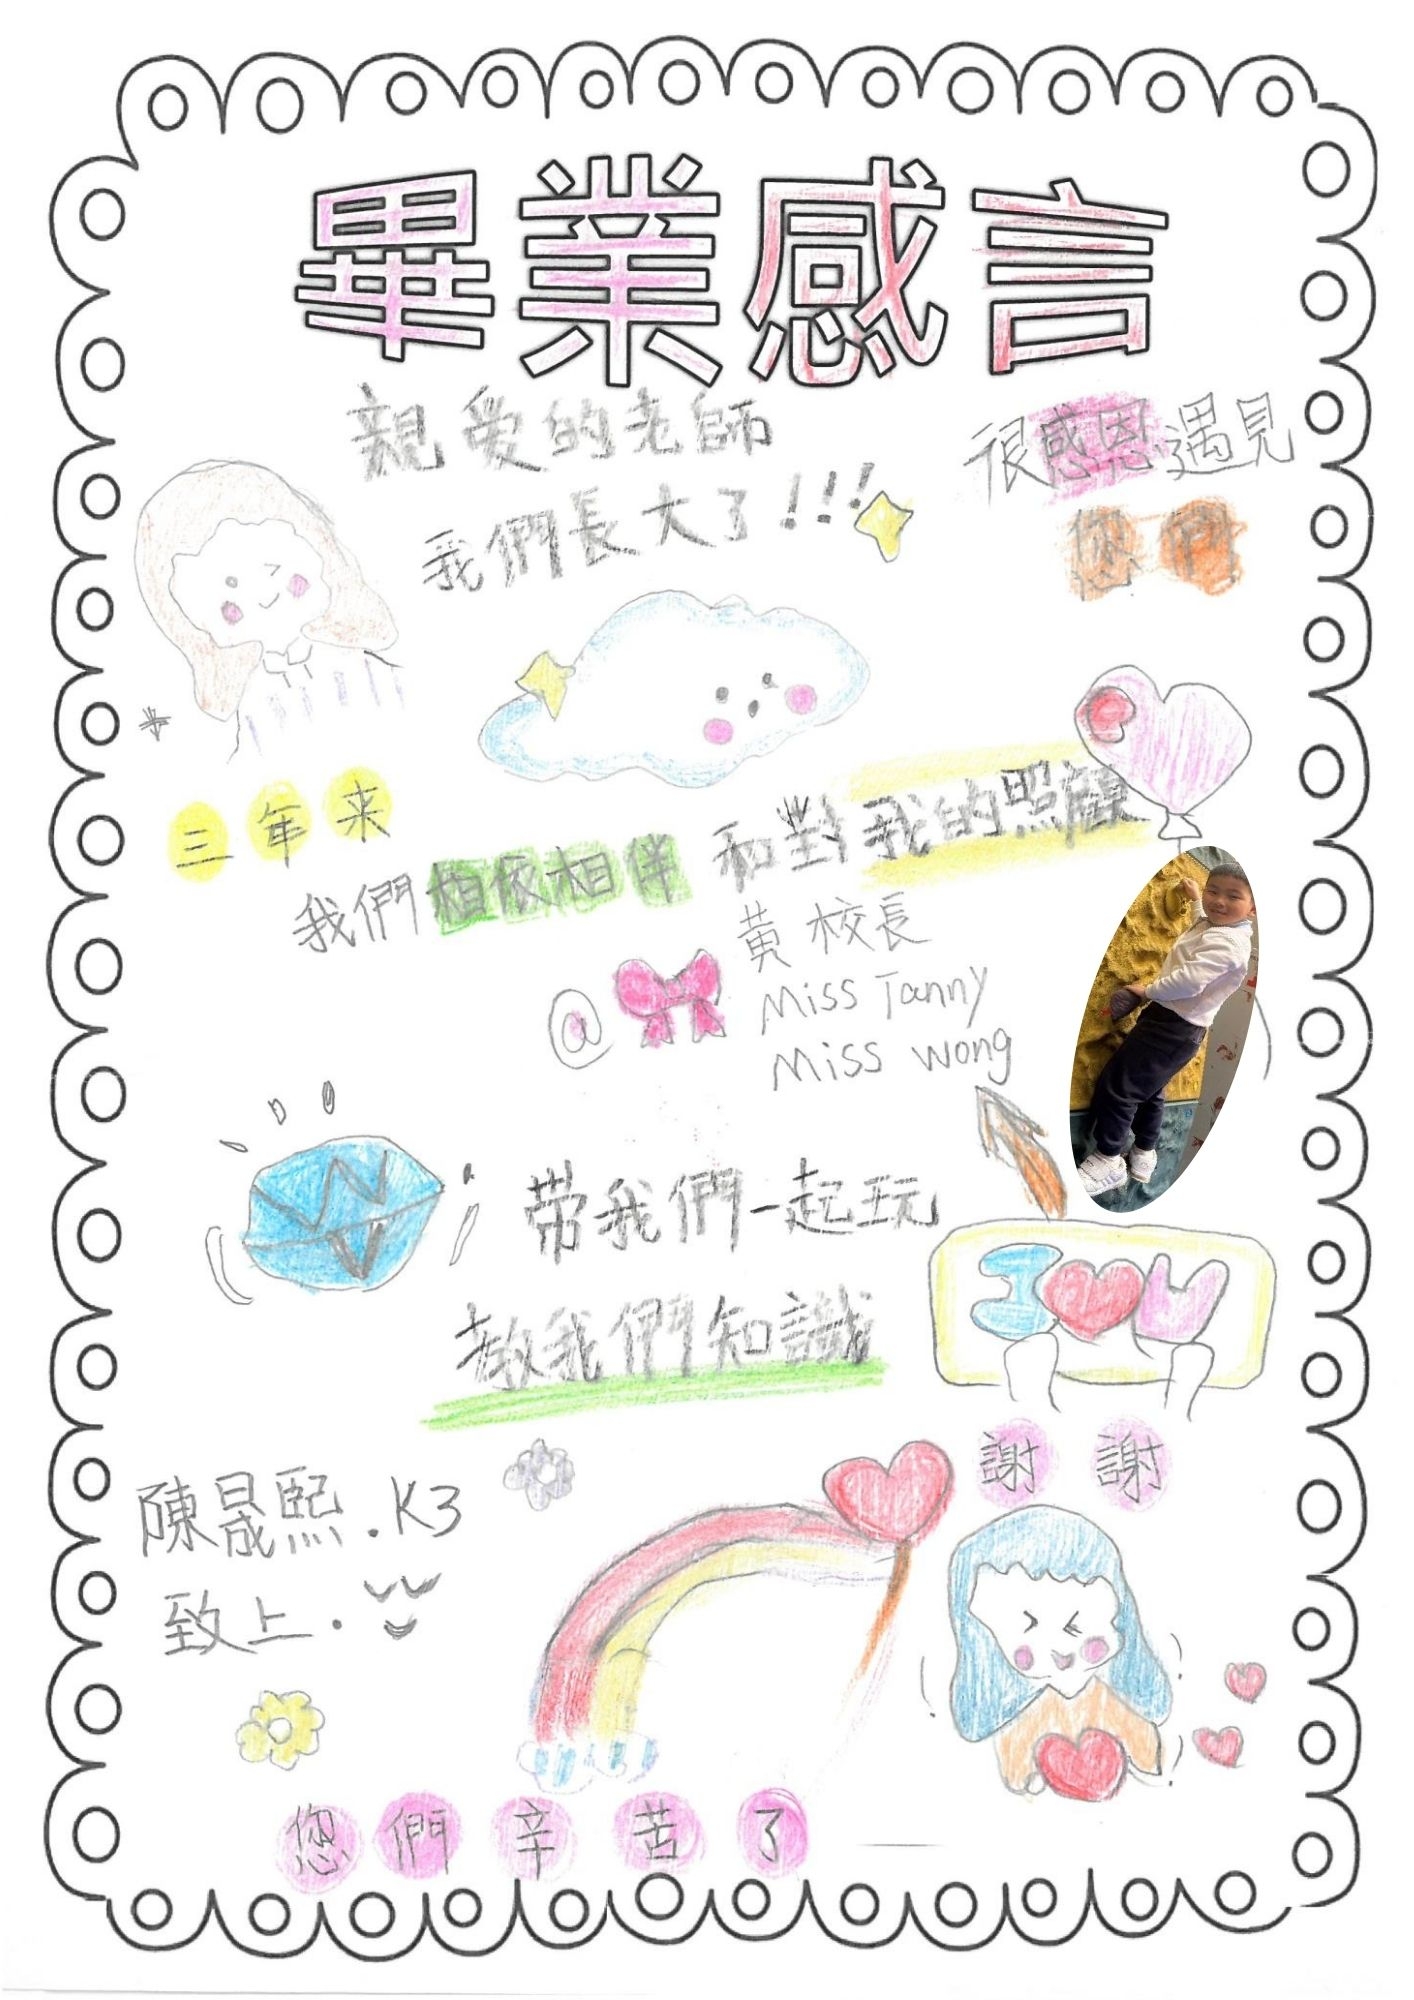 畢業感言
親愛的老師
我們長大了!!!
很感恩遇見
您們
三年来
我們相依相伴
和對我的照顧
@
黄校長
Miss Tanny
Miss Wong
带我們一起玩
教我們知識
I U
謝謝
陳晟熙.K3
致上.
您們辛苦了